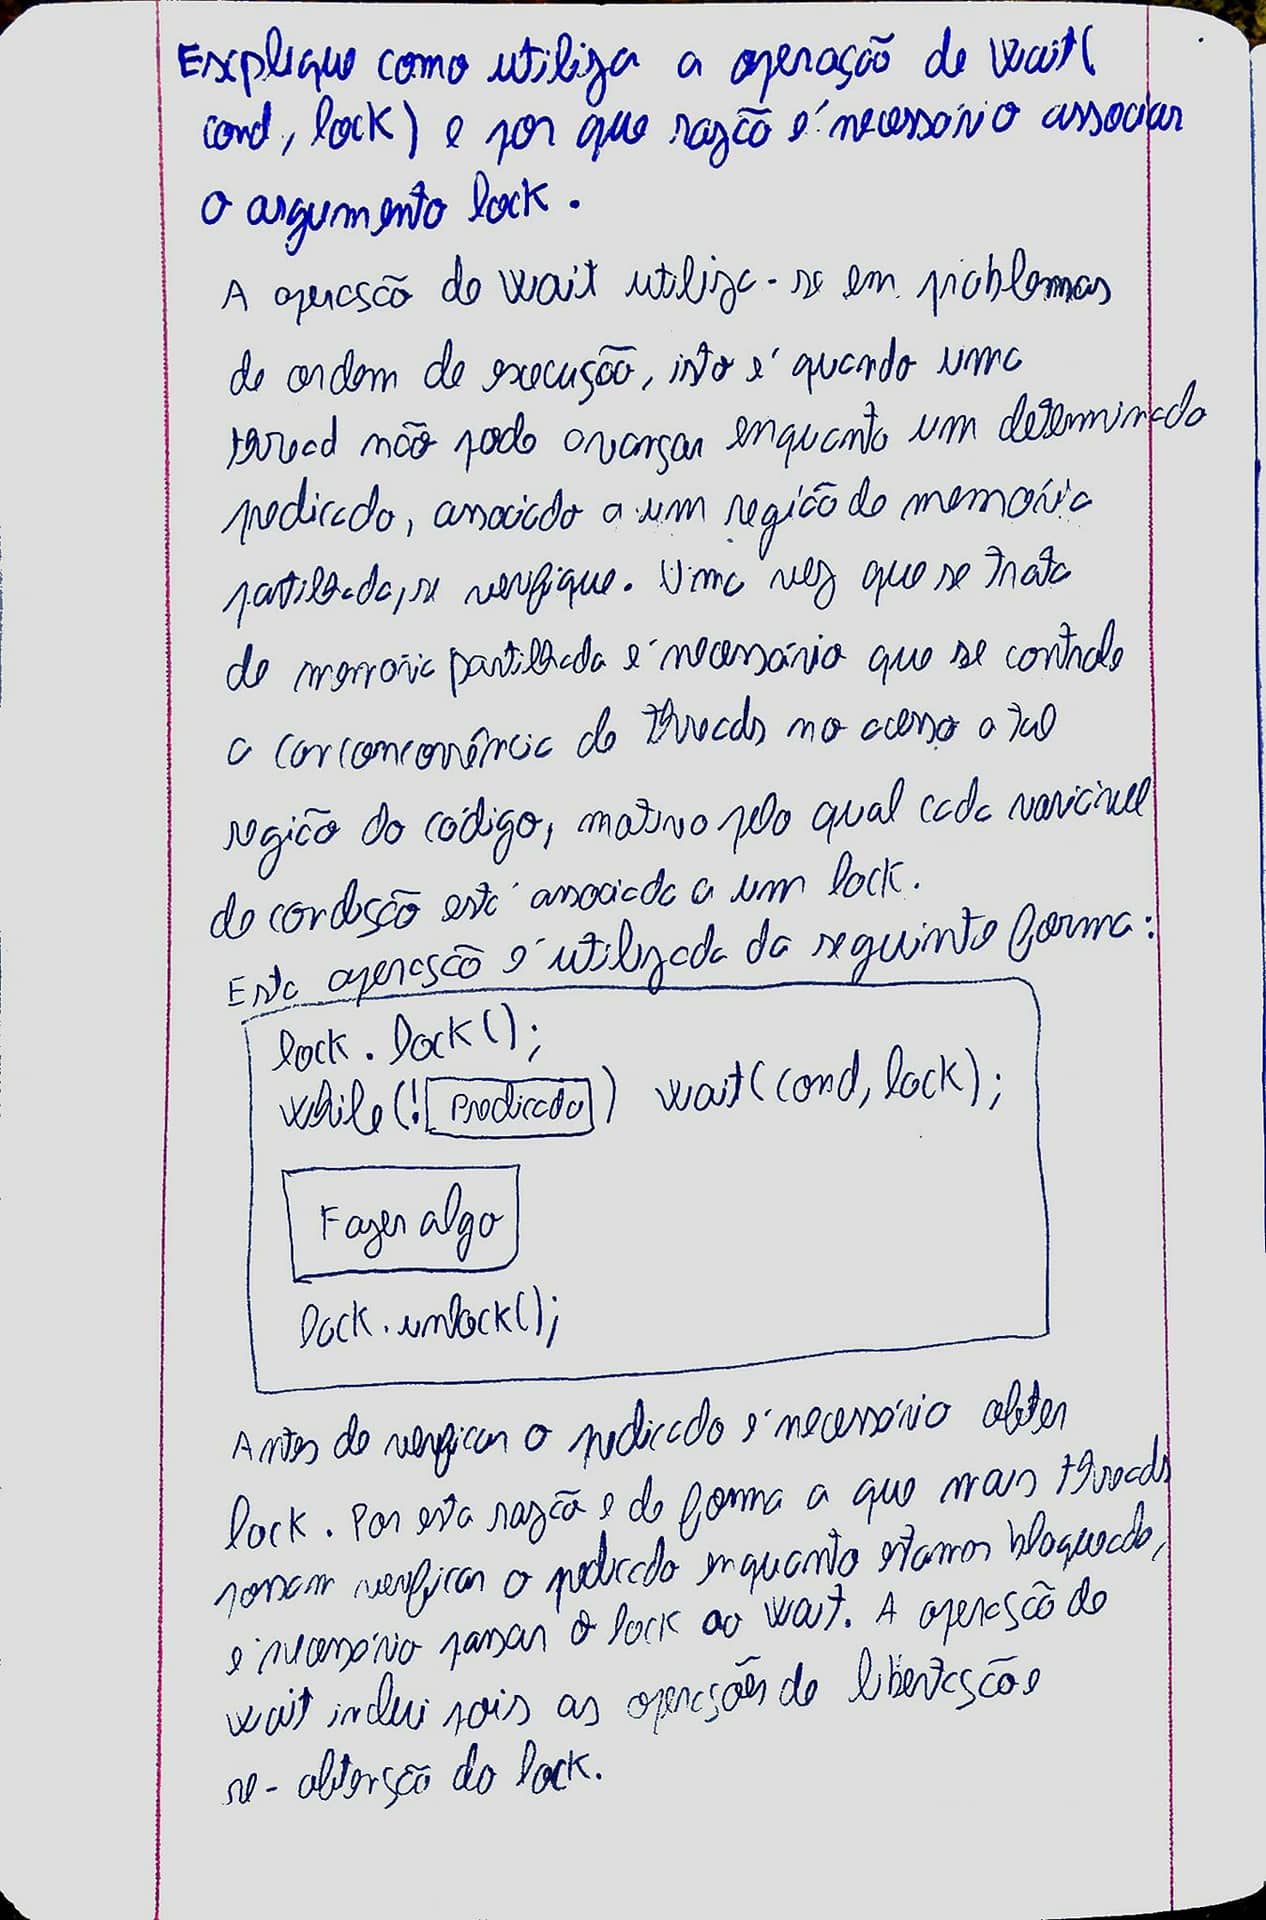 Explique como utiliza a operação de wait(
cond, lock) e por que razão é necessário associar
o argumento lock.
A operação de wait utiliza-se em problemas
de ordem de execução, isto é quando uma
thread não pode avançar enquanto um determinado
predicado, associado a um região de memória
partilhada, se verifique. Uma vez que se trata
de memória partilhada é necessário que se controle
a concorrência de threads no acesso a tal
região do código, motivo pelo qual cada variável
de condição está associada a um lock.
Esta operação é utilizada da seguinte forma:
lock.lock();
while(! Predicado) wait(cond, lock);
Fazer algo
lock.unlock();
Antes de verificar o predicado é necessário obter
lock. Por esta razão e de forma a que mais threads
possam verificar o predicado enquanto estamos bloqueado,
é necessário passar o lock ao wait. A operação de
wait inclui pois as operações de libertação e
re-obtenção do lock.